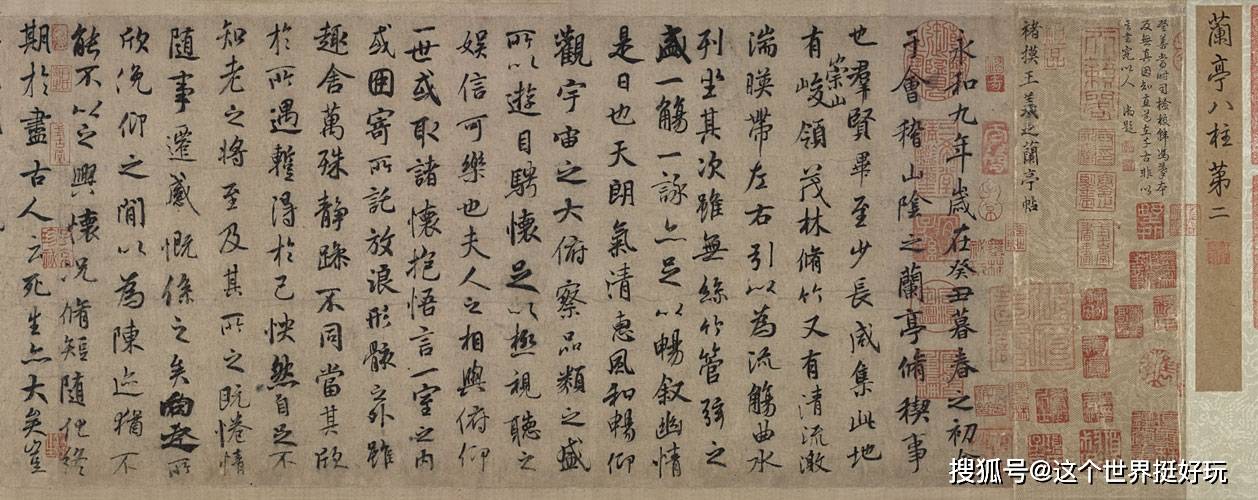 蘭亭八柱第二
褚摸王羲之蘭亭帖
永和九年歲在癸丑暮春之初會
于會稽山陰之蘭亭脩稧事
也群賢畢至少長咸集此地
有崇山峻領茂林脩竹又有清流激
湍暎帶左右引以為流觴曲水
列坐其次雖無絲竹管弦之
盛一觴一詠亦足以暢叙幽情
是日也天朗氣清惠風和暢仰
觀宇宙之大俯察品類之盛
所以遊目騁懷足以極視聽之
娛信可樂也夫人之相與俯仰
一世或取諸懷抱悟言一室之內
或因寄所託放浪形骸之外雖
趣舍萬殊靜躁不同當其欣
於所遇蹔得於己怏然自足不
知老之將至及其所之既惓情
隨事遷感慨係之矣向之所
欣俛仰之閒以為陳迹猶不
能不以之興懷況脩短隨化終
期於盡古人云死生亦大矣豈
搜狐号@这个世界挺好玩